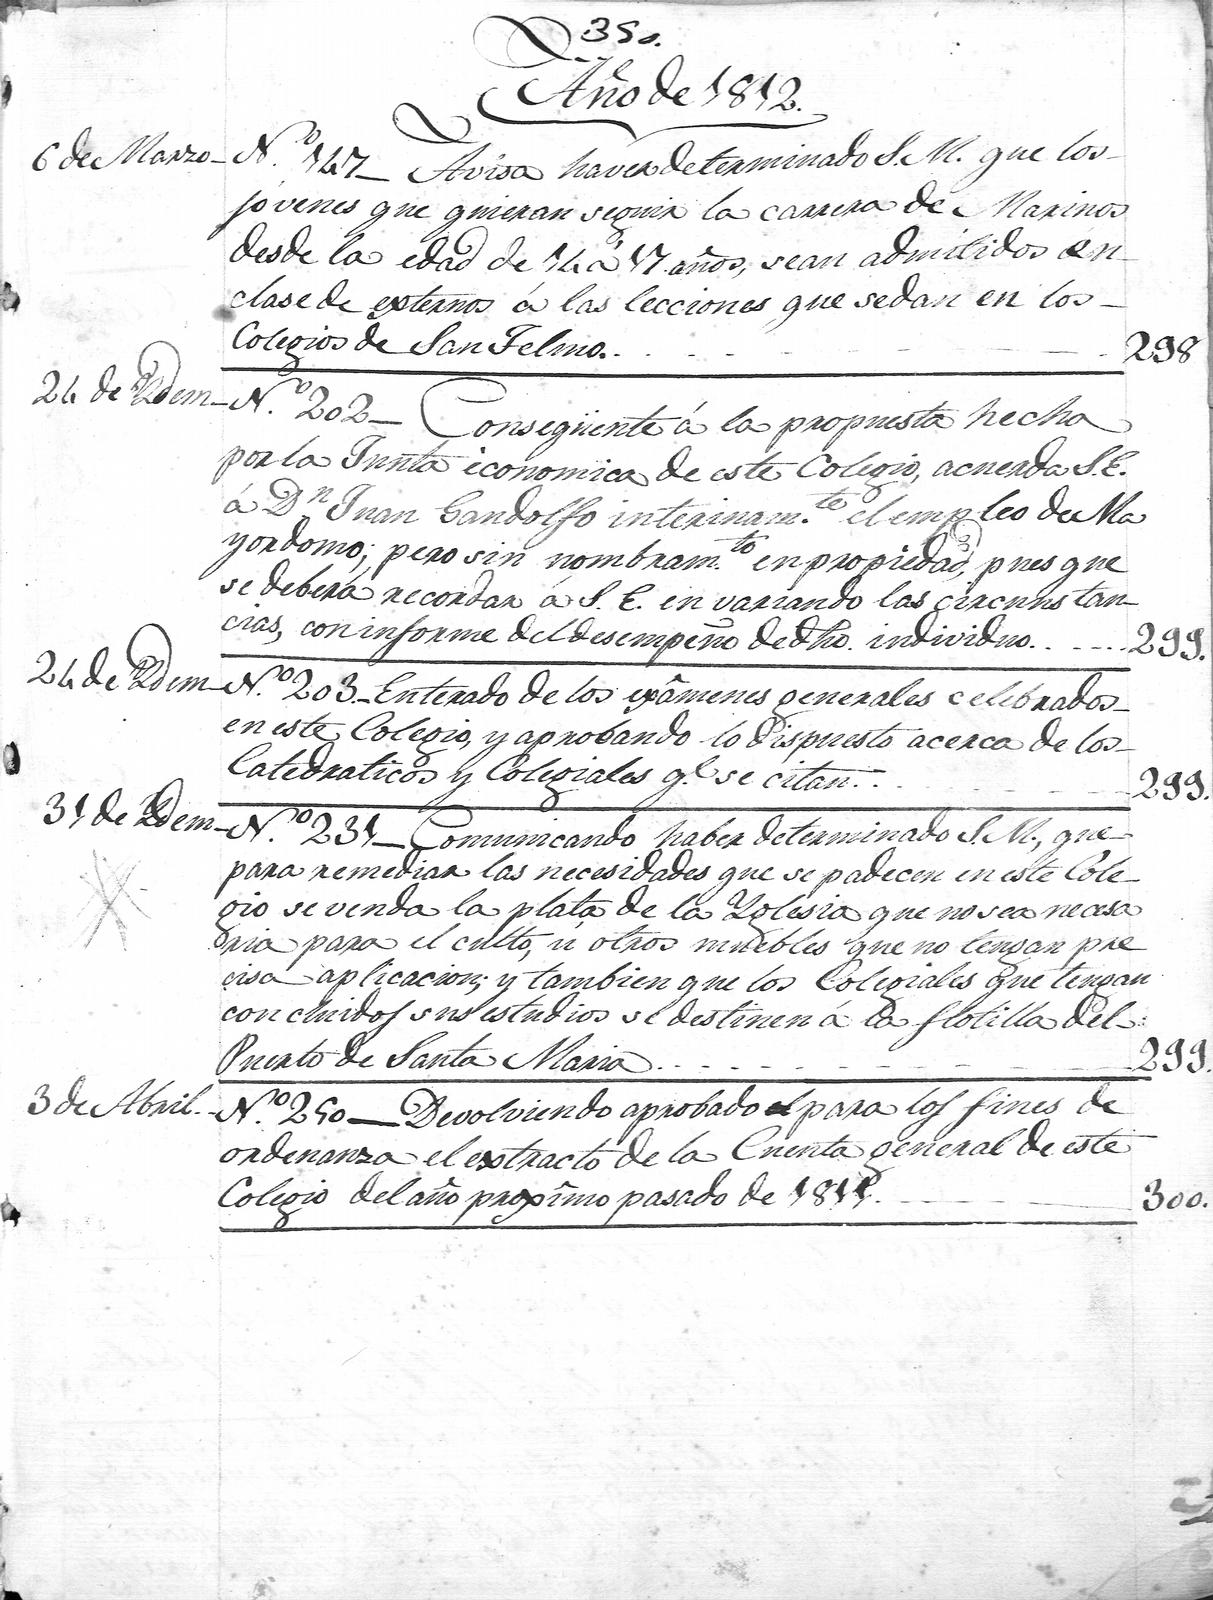 350.
Año de 1812.
6 de Marzo_ N.º 147_ Avisa haver determinado S. M. que los_
jóvenes que quieran seguir la carrera de Marinos
desde la edad de 14 á 17 años, sean admitidos en_
clase de externos á las lecciones que se dan en los_
Colegios de San Telmo. . . . . . 298
24 de Ydem_ N.º 202_ Conseqüente á la propuesta hecha
por la Junta economica de este Colegio, acuerda S. E.
á Dn Juan Gandolfo interinam.te el empleo de Ma
yordomo; pero sin nombram.to en propiedad, pues que
se deberá recordar á S. E. en variando las circunstan_
cias, con informe del desempeño de dho. individuo. . . . . . 299.
24 de Ydem_ N.º 203_ Enterado de los exâmenes generales celebrados_
en este Colegio, y aprobando lo dispuesto acerca de los_
Catedraticos y Colegiales q.e se citan. . . . . 299.
31 de Ydem_ N.º 231_ Comunicando haber determinado S. M., que_
para remediar las necesidades que se padecen en este Cole_
gio se venda la plata de la Yglesia que no sea necesa
ria para el culto, ú otros muebles que no tengan pre
cisa aplicacion; y tambien que los Colegiales que tengan
concluidos sus estudios se destinen á la flotilla del
Puerto de Santa Maria. . . . . . 299.
3 de Abril._ N.º 250_ Devolviendo aprobado para los fines de
ordenanza el extracto de la Cuenta general de este
Colegio del año proxîmo pasado de 1811. 300.